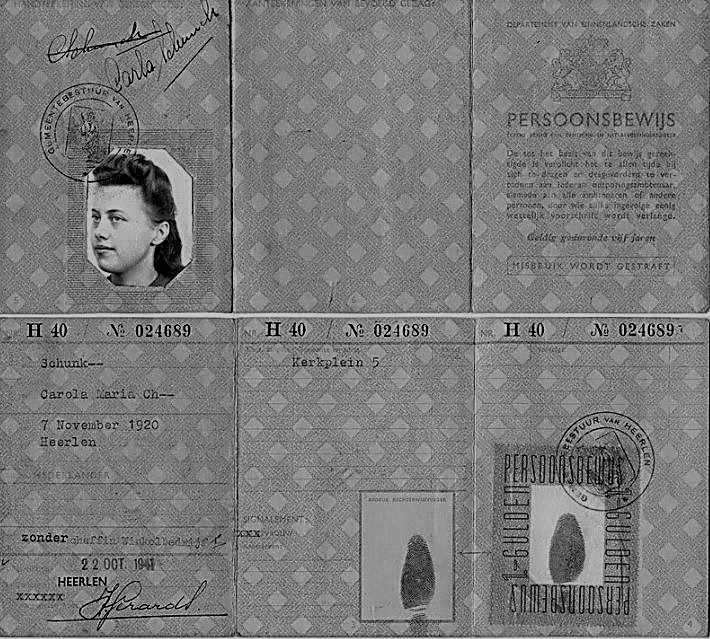 HANDTEEKENING VAN
AANTEEKENINGEN VAN BEVOEGD GEZAG:
Schunck
Carla Schunck
GEMEENTEBESTUUR VAN HEERLEN
5
6
DEPARTEMENT VAN BINNENLANDSCHE ZAKEN
PERSOONSBEWIJS
De tot het bezit van dit bewijs gerech-
tigde is verplicht het te allen tijde bij
zich te dragen en desgevorderd te ver-
toonen aan iederen opsporingsambtenaar,
alsmede aan alle ambtenaren of andere
personen, door wie zulks ingevolge eenig
wettelijk voorschrift wordt verlangd.
Geldig gedurende vijf jaren
MISBRUIK WORDT GESTRAFT
1
H 40 / № 024689
Schunk--
Carola Maria Ch--
7 November 1920
Heerlen
NEDERLANDER
zonder cheffin Winkelbedrijf
22 OCT. 1941
HEERLEN
xxxxxx
NR. H 40 / № 024689
Kerkplein 5
SIGNALEMENT:
xxx
AFDRUK RECHTERWIJSVINGER
3
NR. H 40 / № 024689
BESTUUR VAN HEERLEN
PERSOONSBEWIJS
1- GULDEN
GULDEN
PERSOONSBEWIJS
4